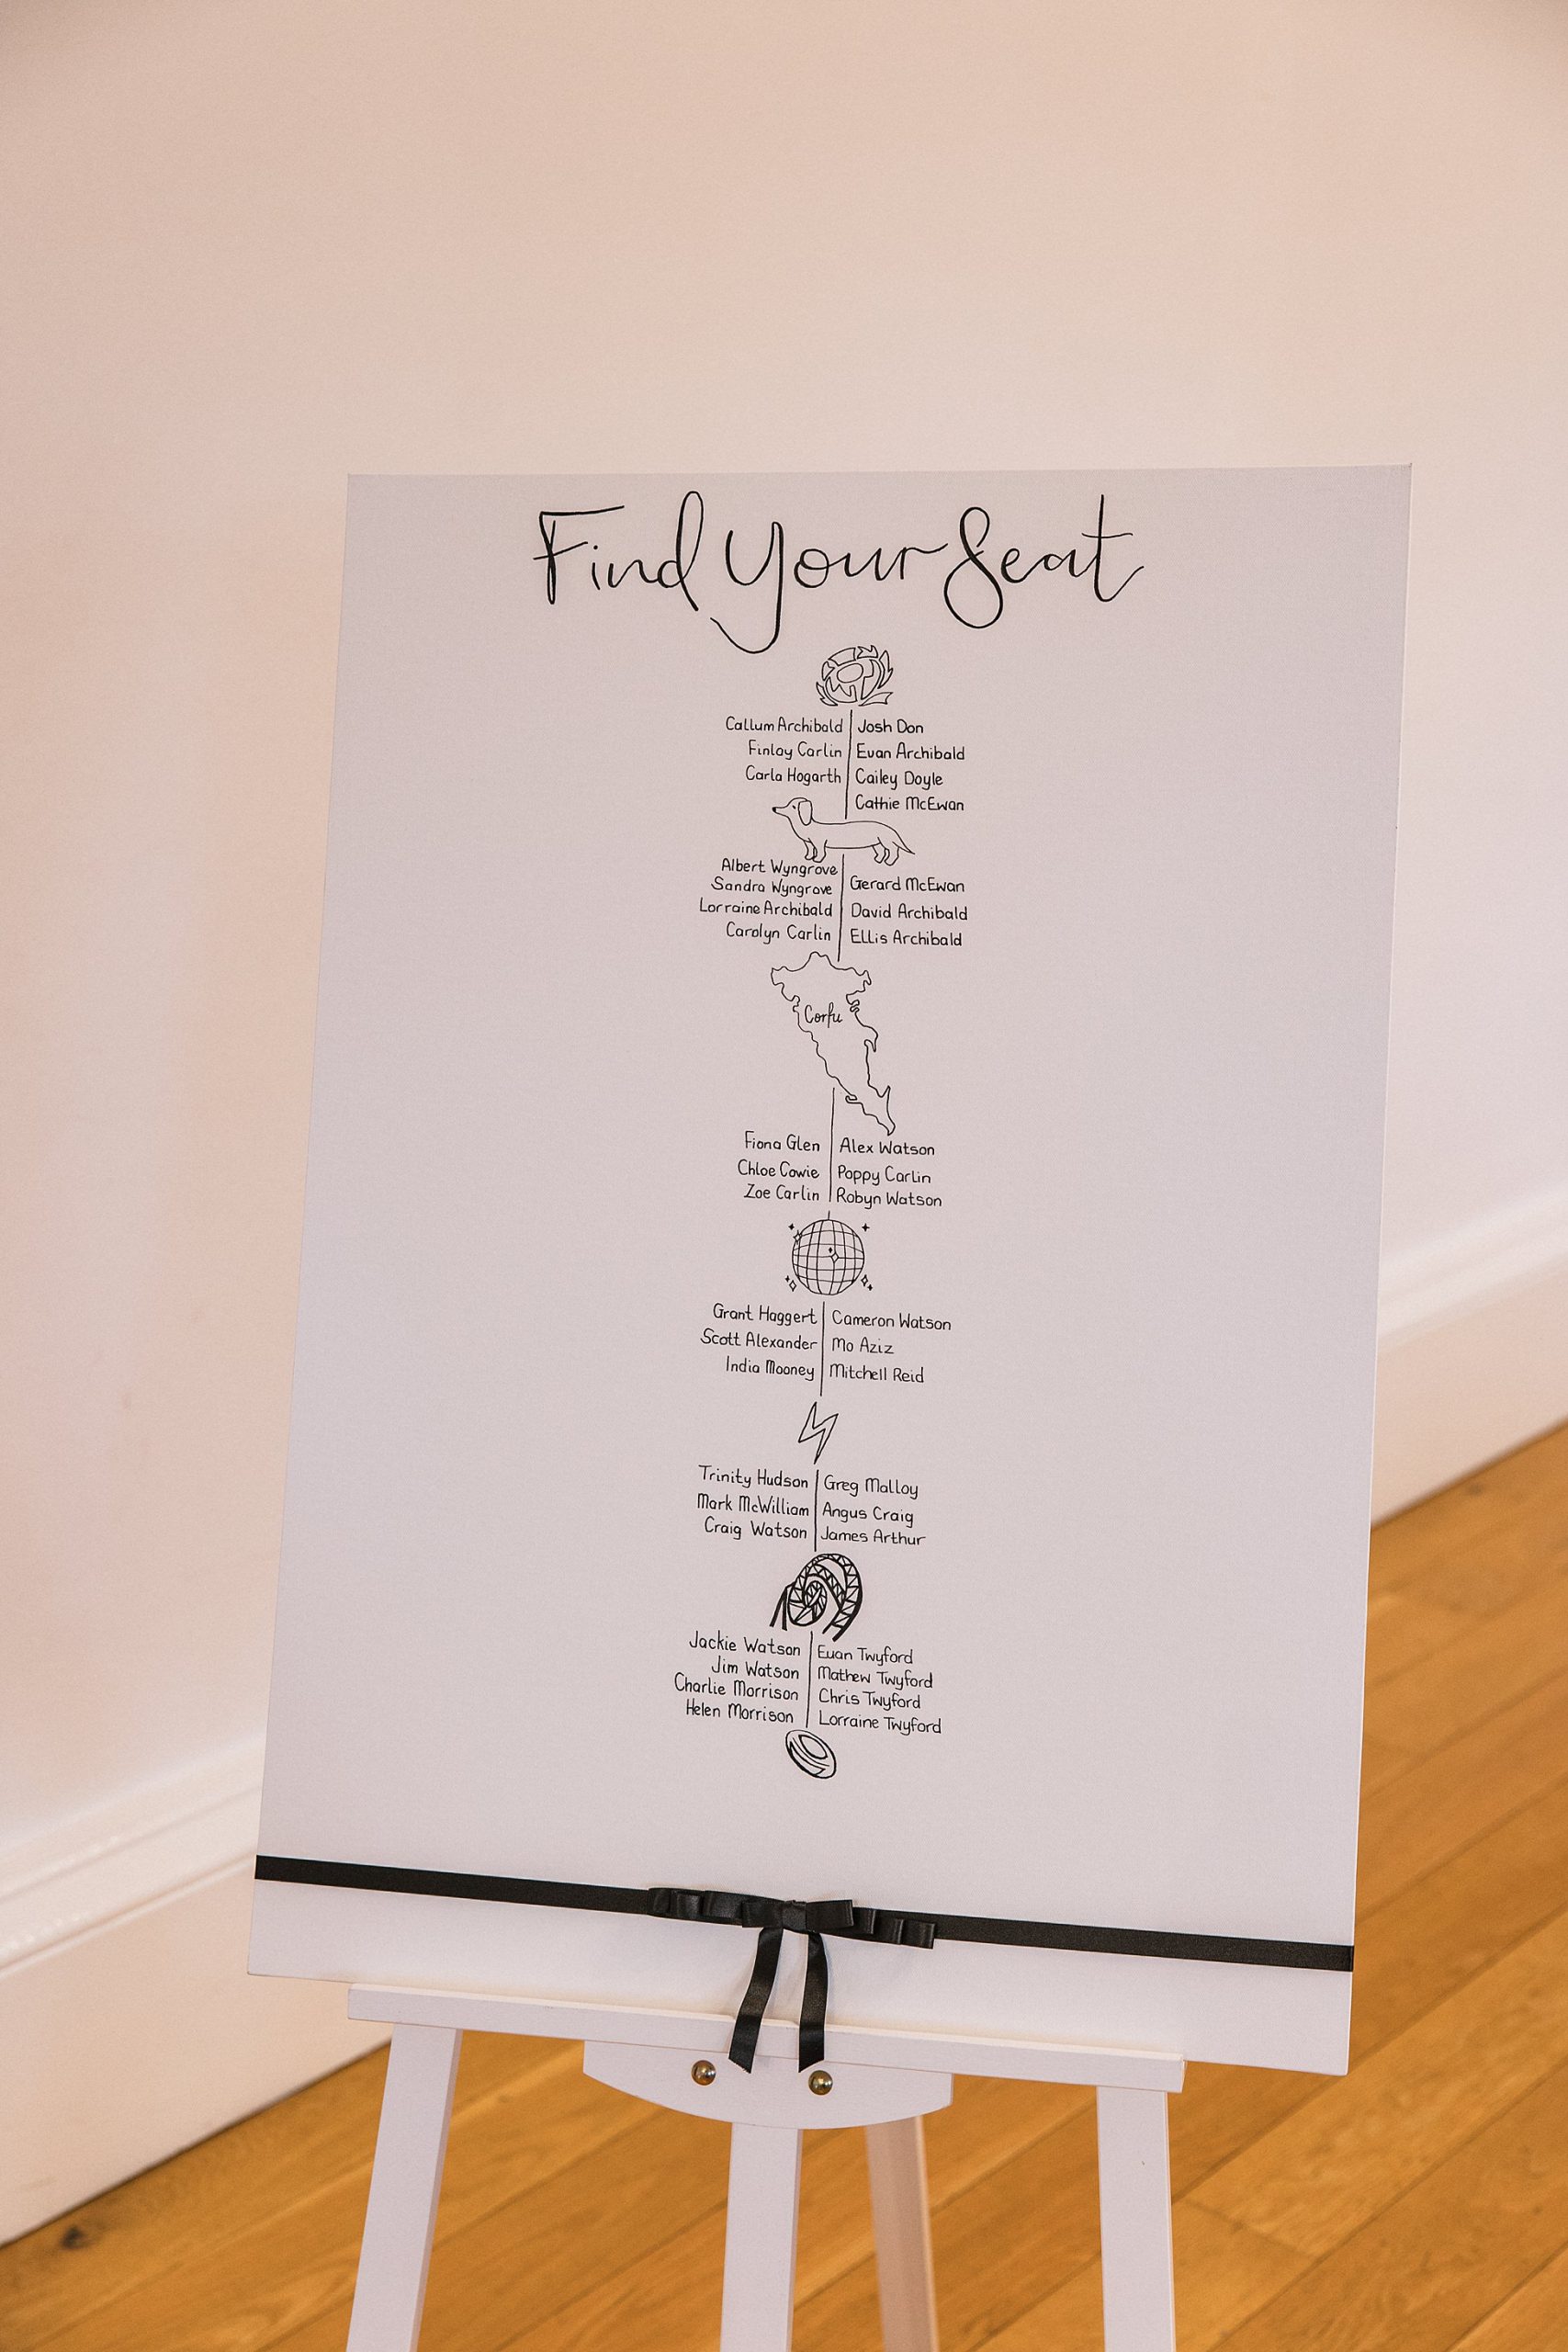 Find Your Seat
Callum Archibald Josh Don
Finlay Carlin Euan Archibald
Carla Hogarth Cailey Doyle
Cathie McEwan
Albert Wyngrove
Sandra Wyngrove Gerard McEwan
Lorraine Archibald David Archibald
Carolyn Carlin Ellis Archibald
Corfu
Fiona Glen Alex Watson
Chloe Cowie Poppy Carlin
Zoe Carlin Robyn Watson
Grant Haggert Cameron Watson
Scott Alexander Mo Aziz
India Mooney Mitchell Reid
Trinity Hudson Greg Malloy
Mark McWilliam Angus Craig
Craig Watson James Arthur
Jackie Watson Euan Twyford
Jim Watson Mathew Twyford
Charlie Morrison Chris Twyford
Helen Morrison Lorraine Twyford